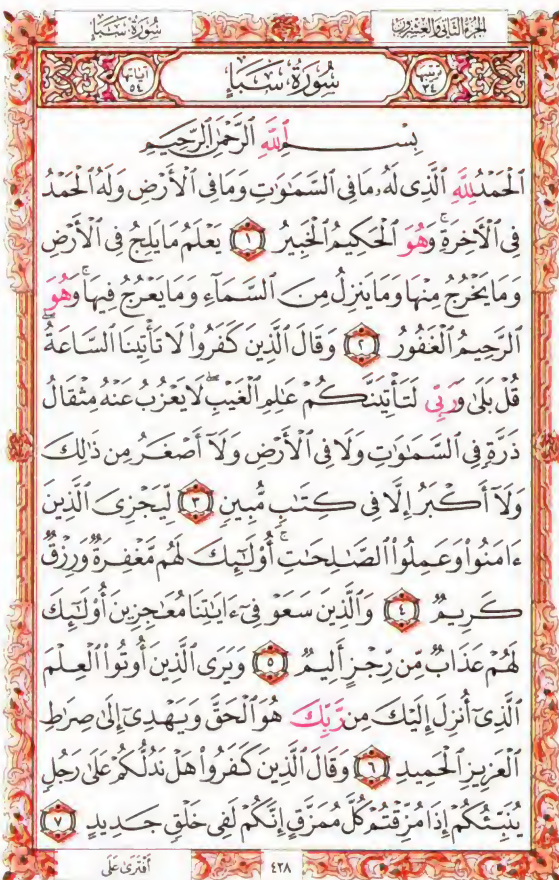 الجزء الثاني والعشرون سورة سبإ
ترتيبها ٣٤ سُورَةُ سَبَإٍ آياتها ٥٤
بِسْمِ ٱللَّهِ ٱلرَّحْمَٰنِ ٱلرَّحِيمِ
ٱلْحَمْدُ لِلَّهِ ٱلَّذِى لَهُۥ مَا فِى ٱلسَّمَٰوَٰتِ وَمَا فِى ٱلْأَرْضِ وَلَهُ ٱلْحَمْدُ
فِى ٱلْءَاخِرَةِ ۚ وَهُوَ ٱلْحَكِيمُ ٱلْخَبِيرُ ١ يَعْلَمُ مَا يَلِجُ فِى ٱلْأَرْضِ
وَمَا يَخْرُجُ مِنْهَا وَمَا يَنزِلُ مِنَ ٱلسَّمَآءِ وَمَا يَعْرُجُ فِيهَا ۚ وَهُوَ
ٱلرَّحِيمُ ٱلْغَفُورُ ٢ وَقَالَ ٱلَّذِينَ كَفَرُوا۟ لَا تَأْتِينَا ٱلسَّاعَةُ ۖ
قُلْ بَلَىٰ وَرَبِّى لَتَأْتِيَنَّكُمْ عَٰلِمِ ٱلْغَيْبِ ۖ لَا يَعْزُبُ عَنْهُ مِثْقَالُ
ذَرَّةٍ فِى ٱلسَّمَٰوَٰتِ وَلَا فِى ٱلْأَرْضِ وَلَآ أَصْغَرُ مِن ذَٰلِكَ
وَلَآ أَكْبَرُ إِلَّا فِى كِتَٰبٍ مُّبِينٍ ٣ لِّيَجْزِىَ ٱلَّذِينَ
ءَامَنُوا۟ وَعَمِلُوا۟ ٱلصَّٰلِحَٰتِ ۚ أُو۟لَٰٓئِكَ لَهُم مَّغْفِرَةٌ وَرِزْقٌ
كَرِيمٌ ٤ وَٱلَّذِينَ سَعَوْ فِىٓ ءَايَٰتِنَا مُعَٰجِزِينَ أُو۟لَٰٓئِكَ
لَهُمْ عَذَابٌ مِّن رِّجْزٍ أَلِيمٌ ٥ وَيَرَى ٱلَّذِينَ أُوتُوا۟ ٱلْعِلْمَ
ٱلَّذِىٓ أُنزِلَ إِلَيْكَ مِن رَّبِّكَ هُوَ ٱلْحَقَّ وَيَهْدِىٓ إِلَىٰ صِرَٰطِ
ٱلْعَزِيزِ ٱلْحَمِيدِ ٦ وَقَالَ ٱلَّذِينَ كَفَرُوا۟ هَلْ نَدُلُّكُمْ عَلَىٰ رَجُلٍ
يُنَبِّئُكُمْ إِذَا مُزِّقْتُمْ كُلَّ مُمَزَّقٍ إِنَّكُمْ لَفِى خَلْقٍ جَدِيدٍ ٧
٤٢٨ أَفْتَرَىٰ عَلَى